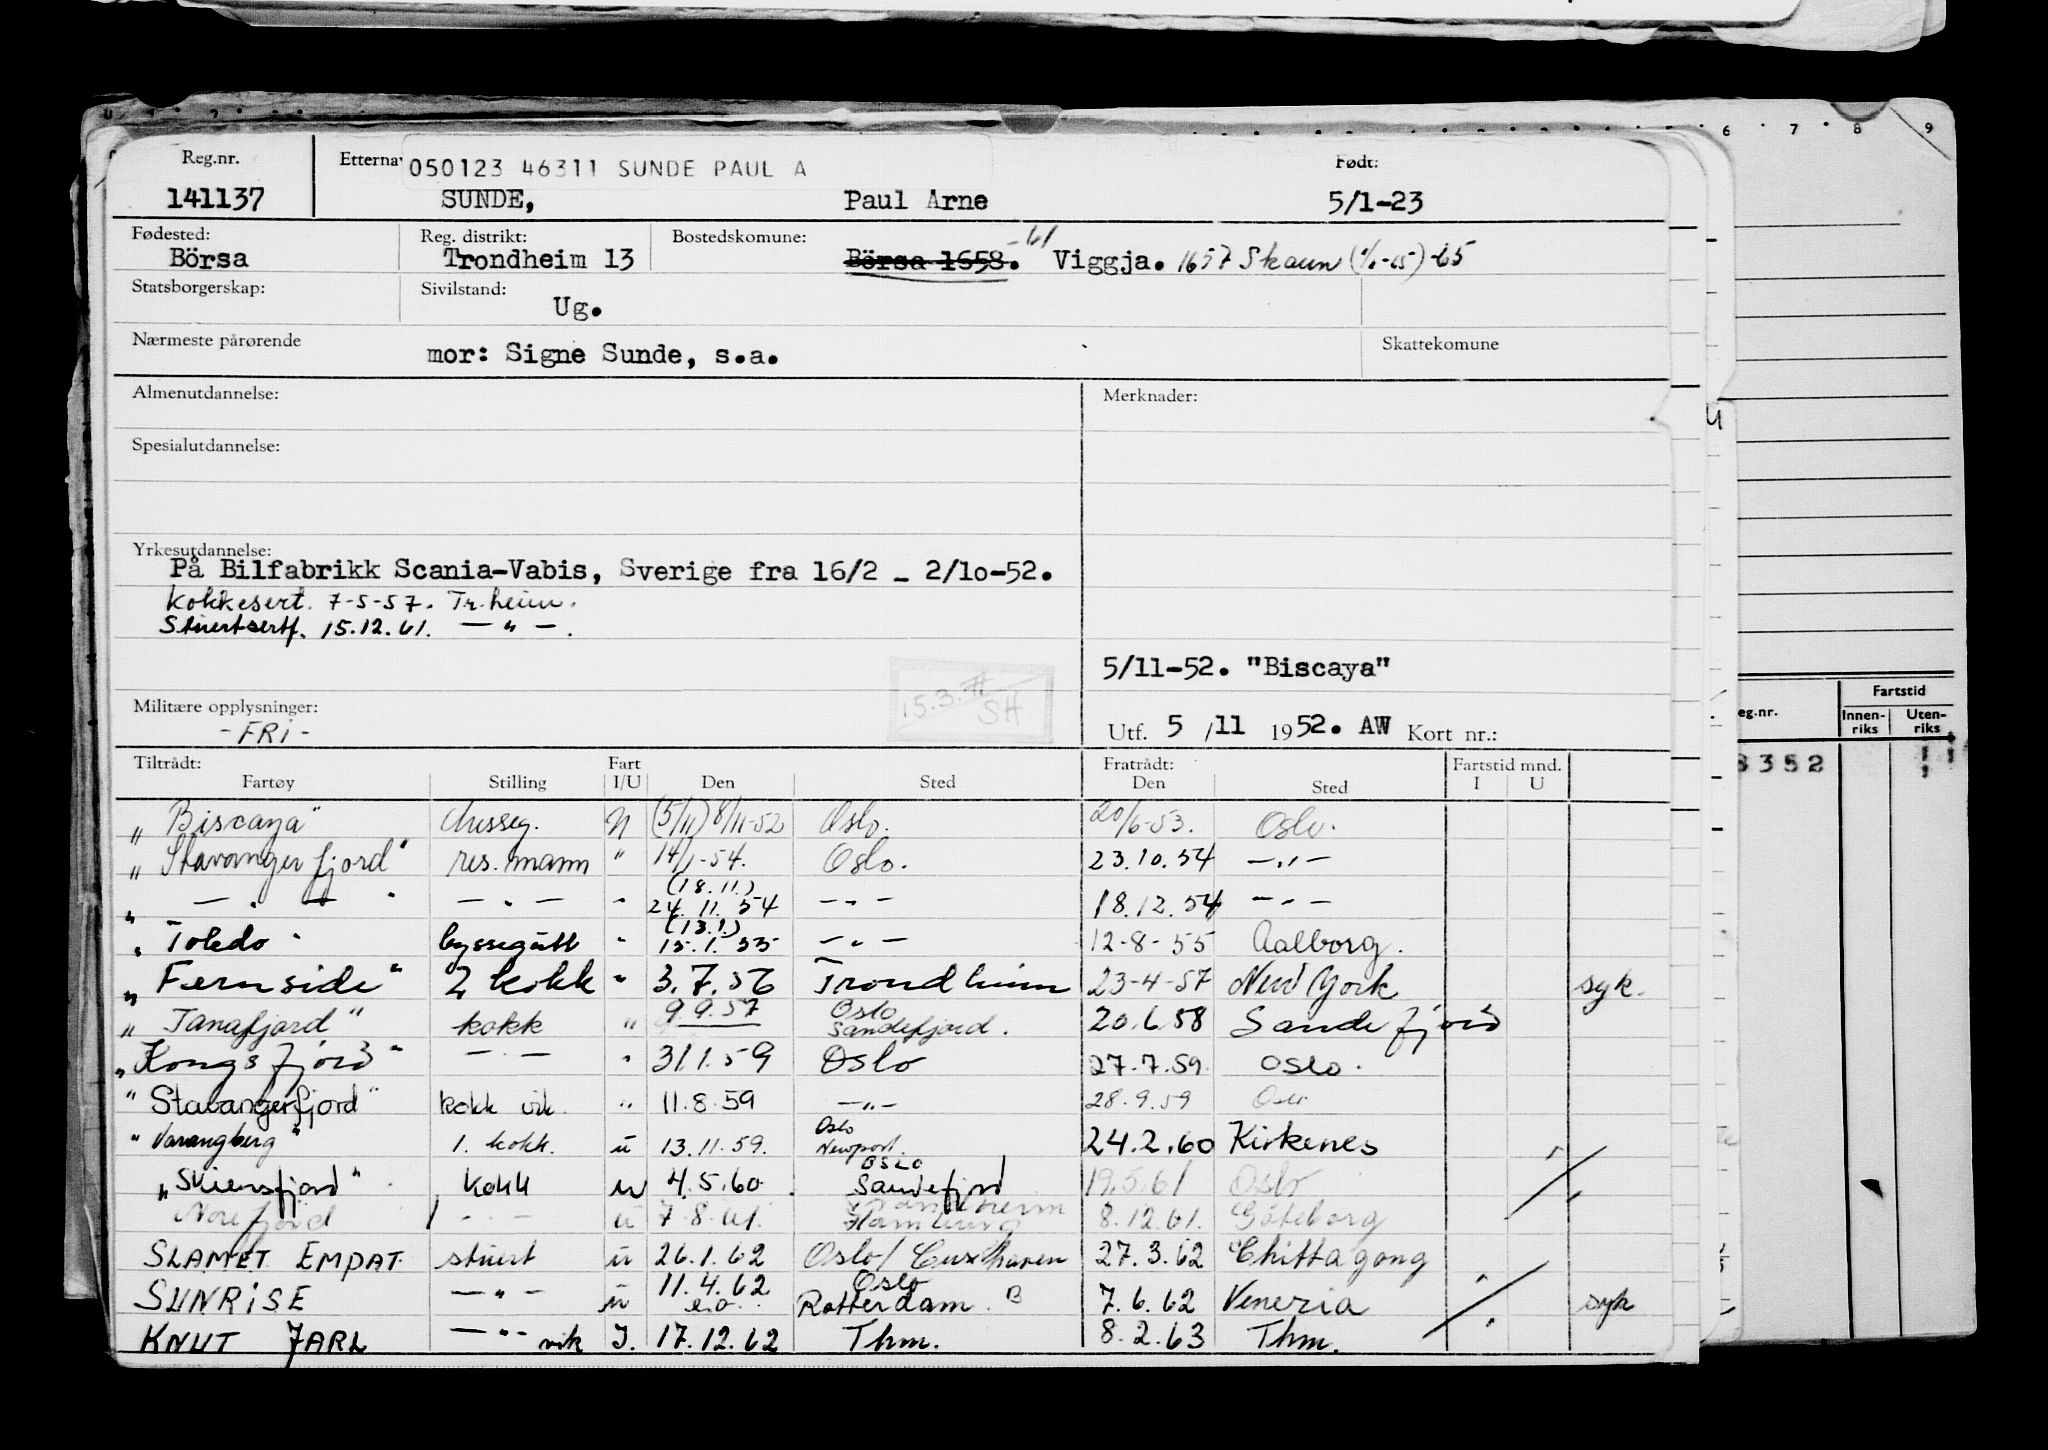 6 7 8 9
Reg.nr. Etterna 050123 46311 SUNDE PAUL A Født:
141137 SUNDE, Paul Arne 5/1-23
Fødested: Reg. distrikt: Bostedskomune: -61
Börsa Trondheim 13 Börsa 1658. Viggja. 1657 Skaun -65
Statsborgerskap: Sivilstand:
Ug.
Nærmeste pårørende mor: Signe Sunde, s.a. Skattekomune
Almenutdannelse: Merknader:
Spesialutdannelse:
Yrkesutdannelse:
På Bilfabrikk Scania-Vabis, Sverige fra 16/2 - 2/10-52.
Kokkesert. 7-5-57. Tr.heim.
Stuertsertf. 15.12.61. — " —.
5/11-52. "Biscaya"
15.3. SH
Militære opplysninger:
-FRI-
Utf. 5 /11 1952. AW Kort nr.:
eg.nr. Fartstid
Innen-riks Uten-riks
8352
Tiltrådt: Fart Fratrådt: Fartstid mnd.
Fartøy Stilling I/U Den Sted Den Sted I U
"Biscaya" (5/11) 8/11-52 Oslo. 20/6-53. Oslo.
"Stavangerfjord" res. mann " 14/1-54. Oslo. 23.10.54 — " —
" — " — " — " — " (18.11.) 24.11.54 — " — 18.12.54 — " —
"Toledo" byssegutt " (13.1.) 15.1.55 — " — 12-8-55 Aalborg.
"Fernside" 2 kokk " 3.7.56 Trondheim 23-4-57 New York syk.
"Tanafjord" kokk " 9.9.57 Oslo Sandefjord. 20.6.58 Sandefjord
"Kongsfjord" — " — " 31.1.59 Oslo 27.7.59. Oslo.
"Stavangerfjord" kokk vik. " 11.8.59 — " — 28.9.59 Oslo
"Varangberg" 1. kokk. u 13.11.59. Oslo Newport. 24.2.60 Kirkenes
"Skiensfjord" kokk u 4.5.60. Oslo Sandefjord 19.5.61 Oslo
Norefjord — " — u 7.8.61. Trondheim Hamburg 8.12.61. Göteborg
SLAMET EMPAT stuert u 26.1.62 Oslo/Cuxhaven 27.3.62 Chittagong
SUNRISE — " — u 11.4.62 Oslo Rotterdam. B 7.6.62 Venezia syk
KNUT JARL — " — vik I. 17.12.62 Thm. 8.2.63 Thm.